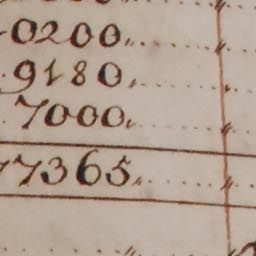 0200
9180
7000
7365